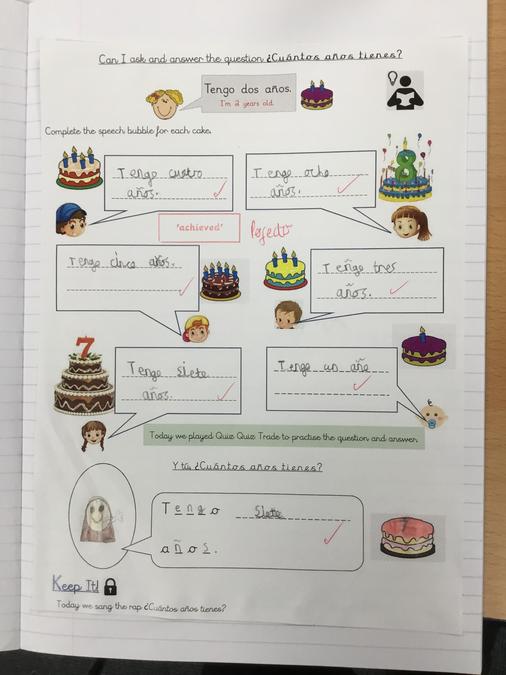 Can I ask and answer the question ¿Cuántos años tienes?
Tengo dos años.
I'm 2 years old.
Complete the speech bubble for each cake.
Tengo cuatro
años.
Tengo ocho
años.
8
'achieved'
Perfecto
Tengo cinco años.
Tengo tres
años.
7
Tengo siete
años.
Tengo un año
Today we played Quiz Quiz Trade to practise the question and answer.
Y tú, ¿Cuántos años tienes?
Tengo siete
años.
7
Keep It!
Today we sang the rap ¿Cuántos años tienes?